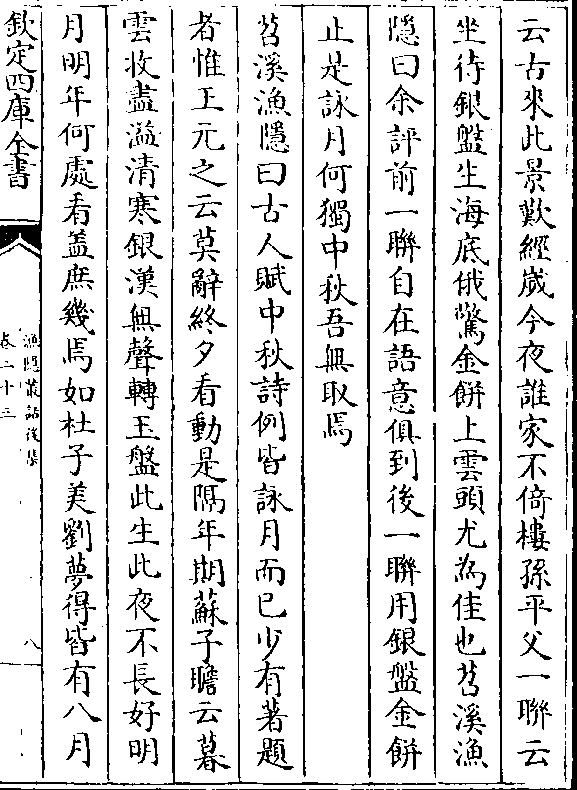 云古來此景歎經歲今夜誰家不倚樓孫平父一聯云
坐待銀盤生海底俄驚金餅上雲頭尤為佳也苕溪漁
隱曰余評前一聯自在語意俱到後一聯用銀盤金餅
止是詠月何獨中秋吾無取焉
苕溪漁隱曰古人賦中秋詩例皆詠月而已少有著題
者惟王元之云莫辭終夕看動是隔年期蘇子瞻云暮
雲收盡溢清寒銀漢無聲轉玉盤此生此夜不長好明
月明年何處看蓋庶幾焉如杜子美劉夢得皆有八月
欽定四庫全書
漁隱叢話後集
卷二十三
八